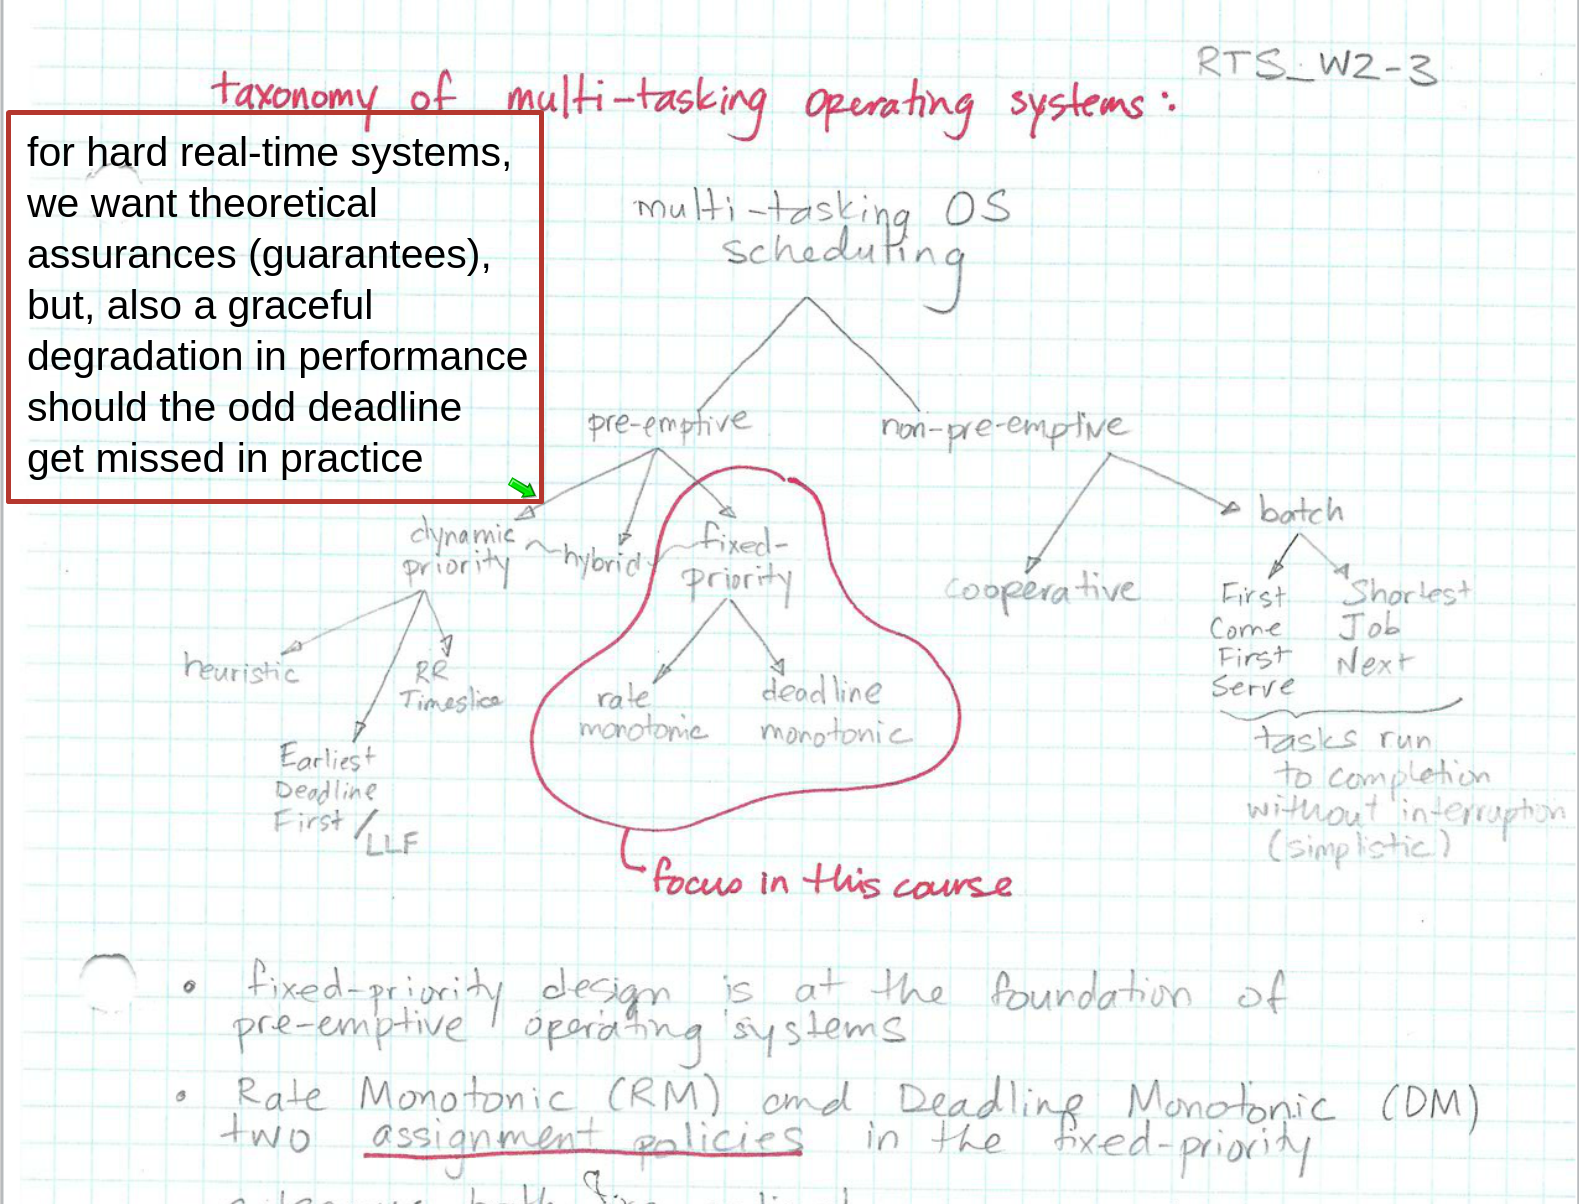 RTS_W2-3
taxonomy of multi-tasking operating systems:
for hard real-time systems,
we want theoretical
assurances (guarantees),
but, also a graceful
degradation in performance
should the odd deadline
get missed in practice
multi-tasking OS
scheduting
pre-emptive
non-pre-emptive
dynamic
priority
hybrid
fixed-
priority
cooperative
batch
heuristic
RR
Timeslice
Earliest
Deadline
First / LLF
rate
monotonic
deadline
monotonic
First
Come
First
Serve
Shortest
Job
Next
tasks run
to completion
without interruption
(simplistic)
focus in this course
• fixed-priority design is at the foundation of
pre-emptive operating systems
• Rate Monotonic (RM) and Deadline Monotonic (DM)
two assignment policies in the fixed-priority